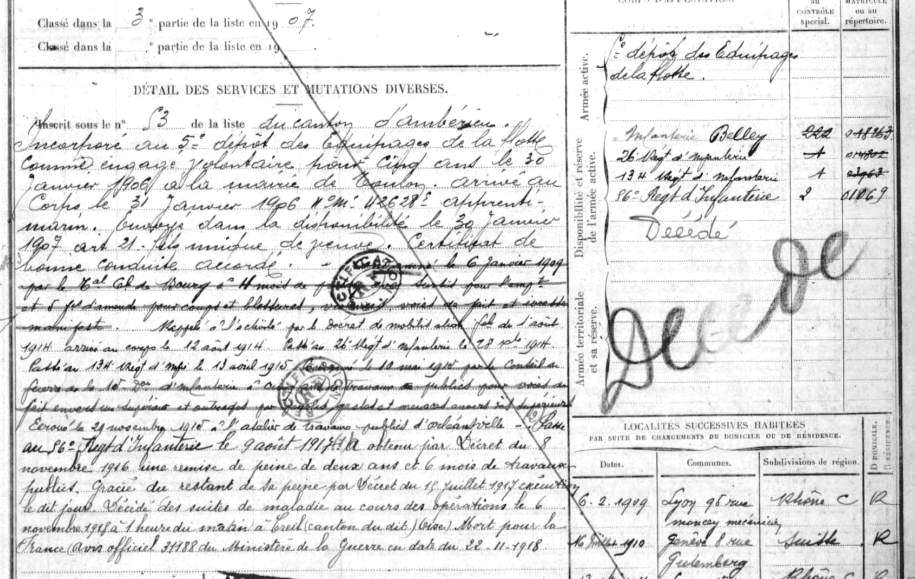 Classé dans la 3e partie de la liste en 1907.
Classé dans la " partie de la liste en 19
DÉTAIL DES SERVICES ET MUTATIONS DIVERSES.
Inscrit sous le n° 53 de la liste du canton d'ambérieu.
Incorporé au 5e dépôt des Equipages de la flotte
comme engagé volontaire pour cinq ans le 30
janvier 1906 à la mairie de Toulon. arrivé au
Corps le 31 Janvier 1906 No Me 42628 apprenti-
marin. Envoyé dans la disponibilité le 30 Janvier
1907 art 21. fils unique de veuve. Certificat de
bonne conduite accordé. le 6 janvier 1909
par le Bal Cel de Bourg à 4 mois de
et 5 f d'amende pour coups et blessures, voies de fait et ivresse
manifeste. Rappelé à l'activité par le Décret de mobilisation gale du 1er août
1914 arrivé au corps le 12 août 1914. Passé au 26e Regt d'Infanterie le 28
1914
Passé au 134 Regt d'Infie le 13 avril 1915 le 10 mai 1915 par le Conseil de
Guerre de la 15e Don d'Infanterie à ans de travaux publics pour voies de
fait envers un supérieur et outrages par gestes et menaces envers
Ecroué le 29 novembre 1915 à l'atelier de travaux publics d'Orléansville - Passé
au 56e Regt d'Infanterie le 9 août 1917. A obtenu par Décret du 8
novembre 1916 une remise de peine de deux ans et 6 mois de travaux
publics. Gracié du restant de la peine par Décret du 15 Juillet 1917 exécution
le dit jour. Décédé des suites de maladie au cours des opérations le 6
novembre 1918 à 1 heure du matin à Creil (canton du dit) (Oise) Mort pour la
France (Avis officiel 31188 du Ministère de la Guerre en date du 22-11-1918
au
CONTRÔLE
spécial.
MATRICULE
ou au
répertoire.
Armée active.
5e dépôt des Equipages
de la flotte.
Disponibilité et réserve
de l'armée active.
Infanterie Belley 222
26 Regt d'Infanterie
134 Regt d'Infanterie
56e Regt d'Infanterie 2 01069
Décédé
Armée territoriale
et sa réserve.
Décédé
LOCALITÉS SUCCESSIVES HABITÉES
PAR SUITE DE CHANGEMENTS DE DOMICILE OU DE RÉSIDENCE.
Dates. Communes. Subdivisions de région. D DOMICILE, R RÉSIDENCE.
6-2-1909 Lyon 95 rue Rhône C R
moncey mécanicien
16 Juillet 1910 Genève 8 rue Suisse R
Gutemberg
Rhône C R